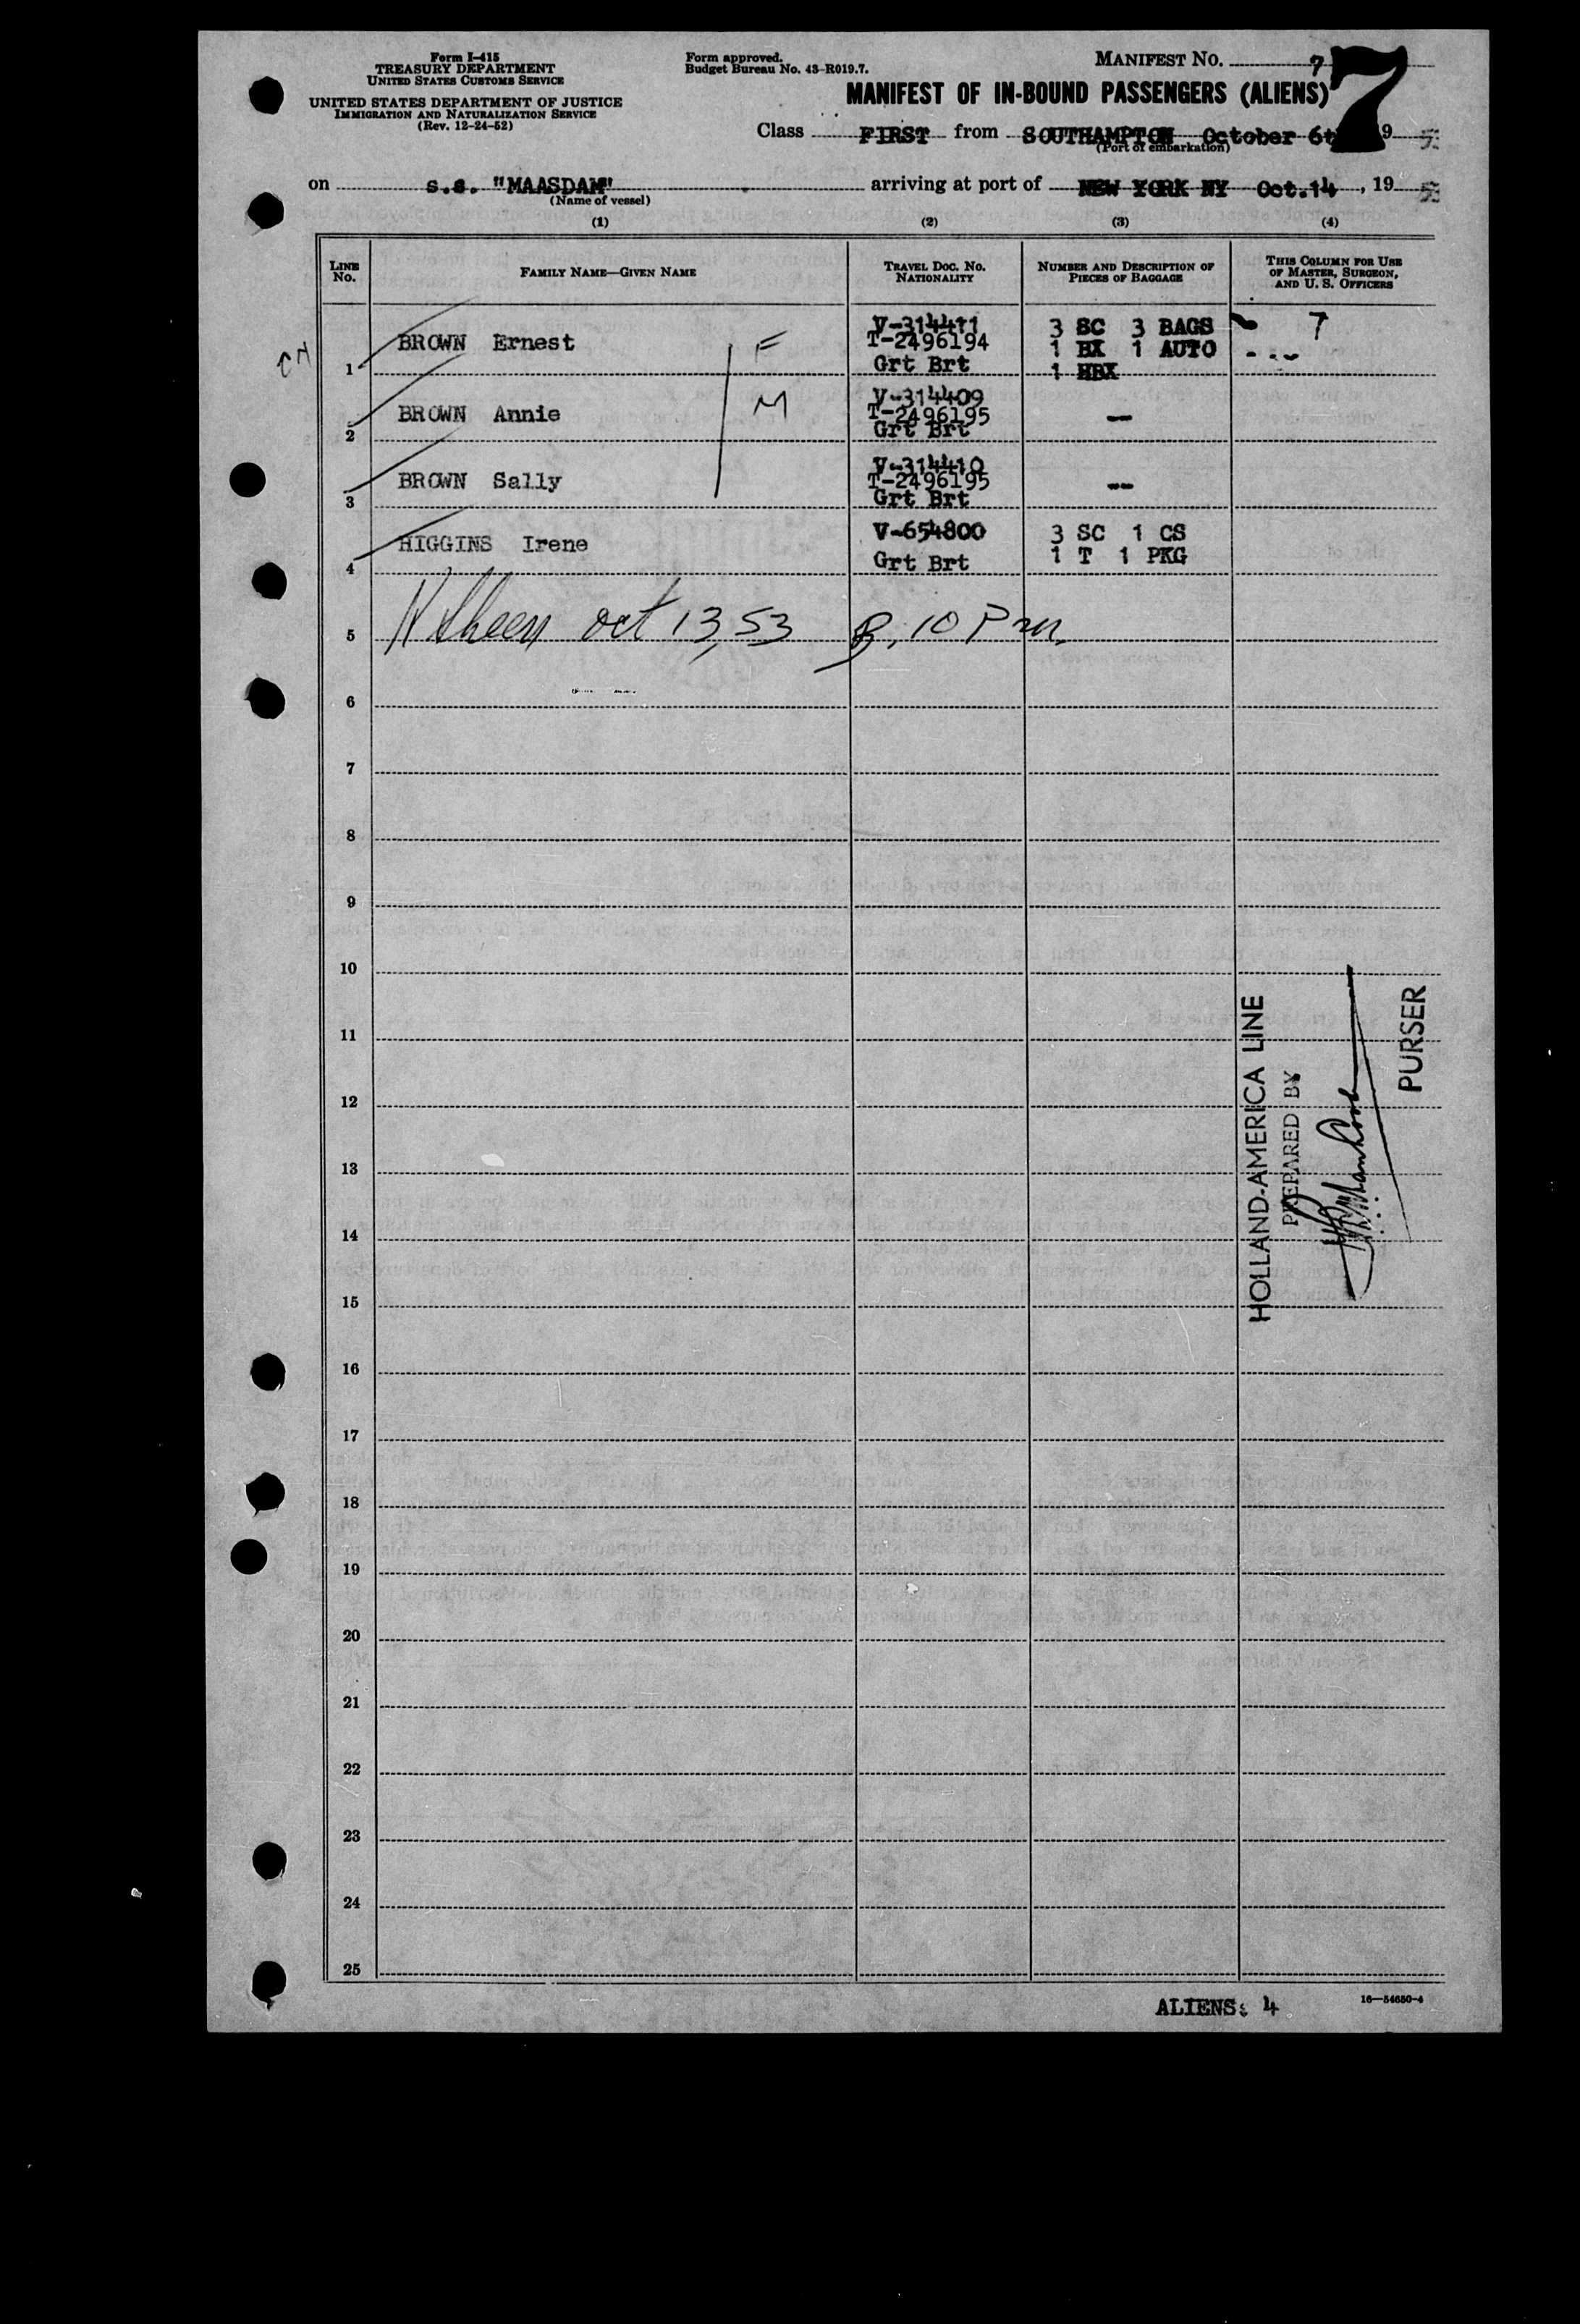 Form I-415
TREASURY DEPARTMENT
UNITED STATES CUSTOMS SERVICE
UNITED STATES DEPARTMENT OF JUSTICE
IMMIGRATION AND NATURALIZATION SERVICE
(Rev. 12-24-52)
Form approved.
Budget Bureau No. 43-R019.7.
MANIFEST NO. 7
7
MANIFEST OF IN-BOUND PASSENGERS (ALIENS)
Class FIRST from SOUTHAMPTON October 6th 19 53
(Port of embarkation)
on s.s. "MAASDAM" arriving at port of NEW YORK NY Oct.14, 19 53
(Name of vessel)
(1) (2) (3) (4)
LINE NO.
FAMILY NAME—GIVEN NAME
TRAVEL DOC. NO. NATIONALITY
NUMBER AND DESCRIPTION OF PIECES OF BAGGAGE
THIS COLUMN FOR USE OF MASTER, SURGEON, AND U. S. OFFICERS
1 BROWN Ernest F
V-314411
T-2496194
Grt Brt
3 SC 3 BAGS
1 BX 1 AUTO
1 HBX
7
2 BROWN Annie M
V-314409
T-2496195
Grt Brt
—
3 BROWN Sally
V-314410
T-2496195
Grt Brt
--
4 HIGGINS Irene
V-654800
Grt Brt
3 SC 1 CS
1 T 1 PKG
5 oct 13, 53 10 Pm
6
7
8
9
10
11
12
13
14
15
16
17
18
19
20
21
22
23
24
25
HOLLAND-AMERICA LINE
PREPARED BY
PURSER
ALIENS: 4
16—54650-4